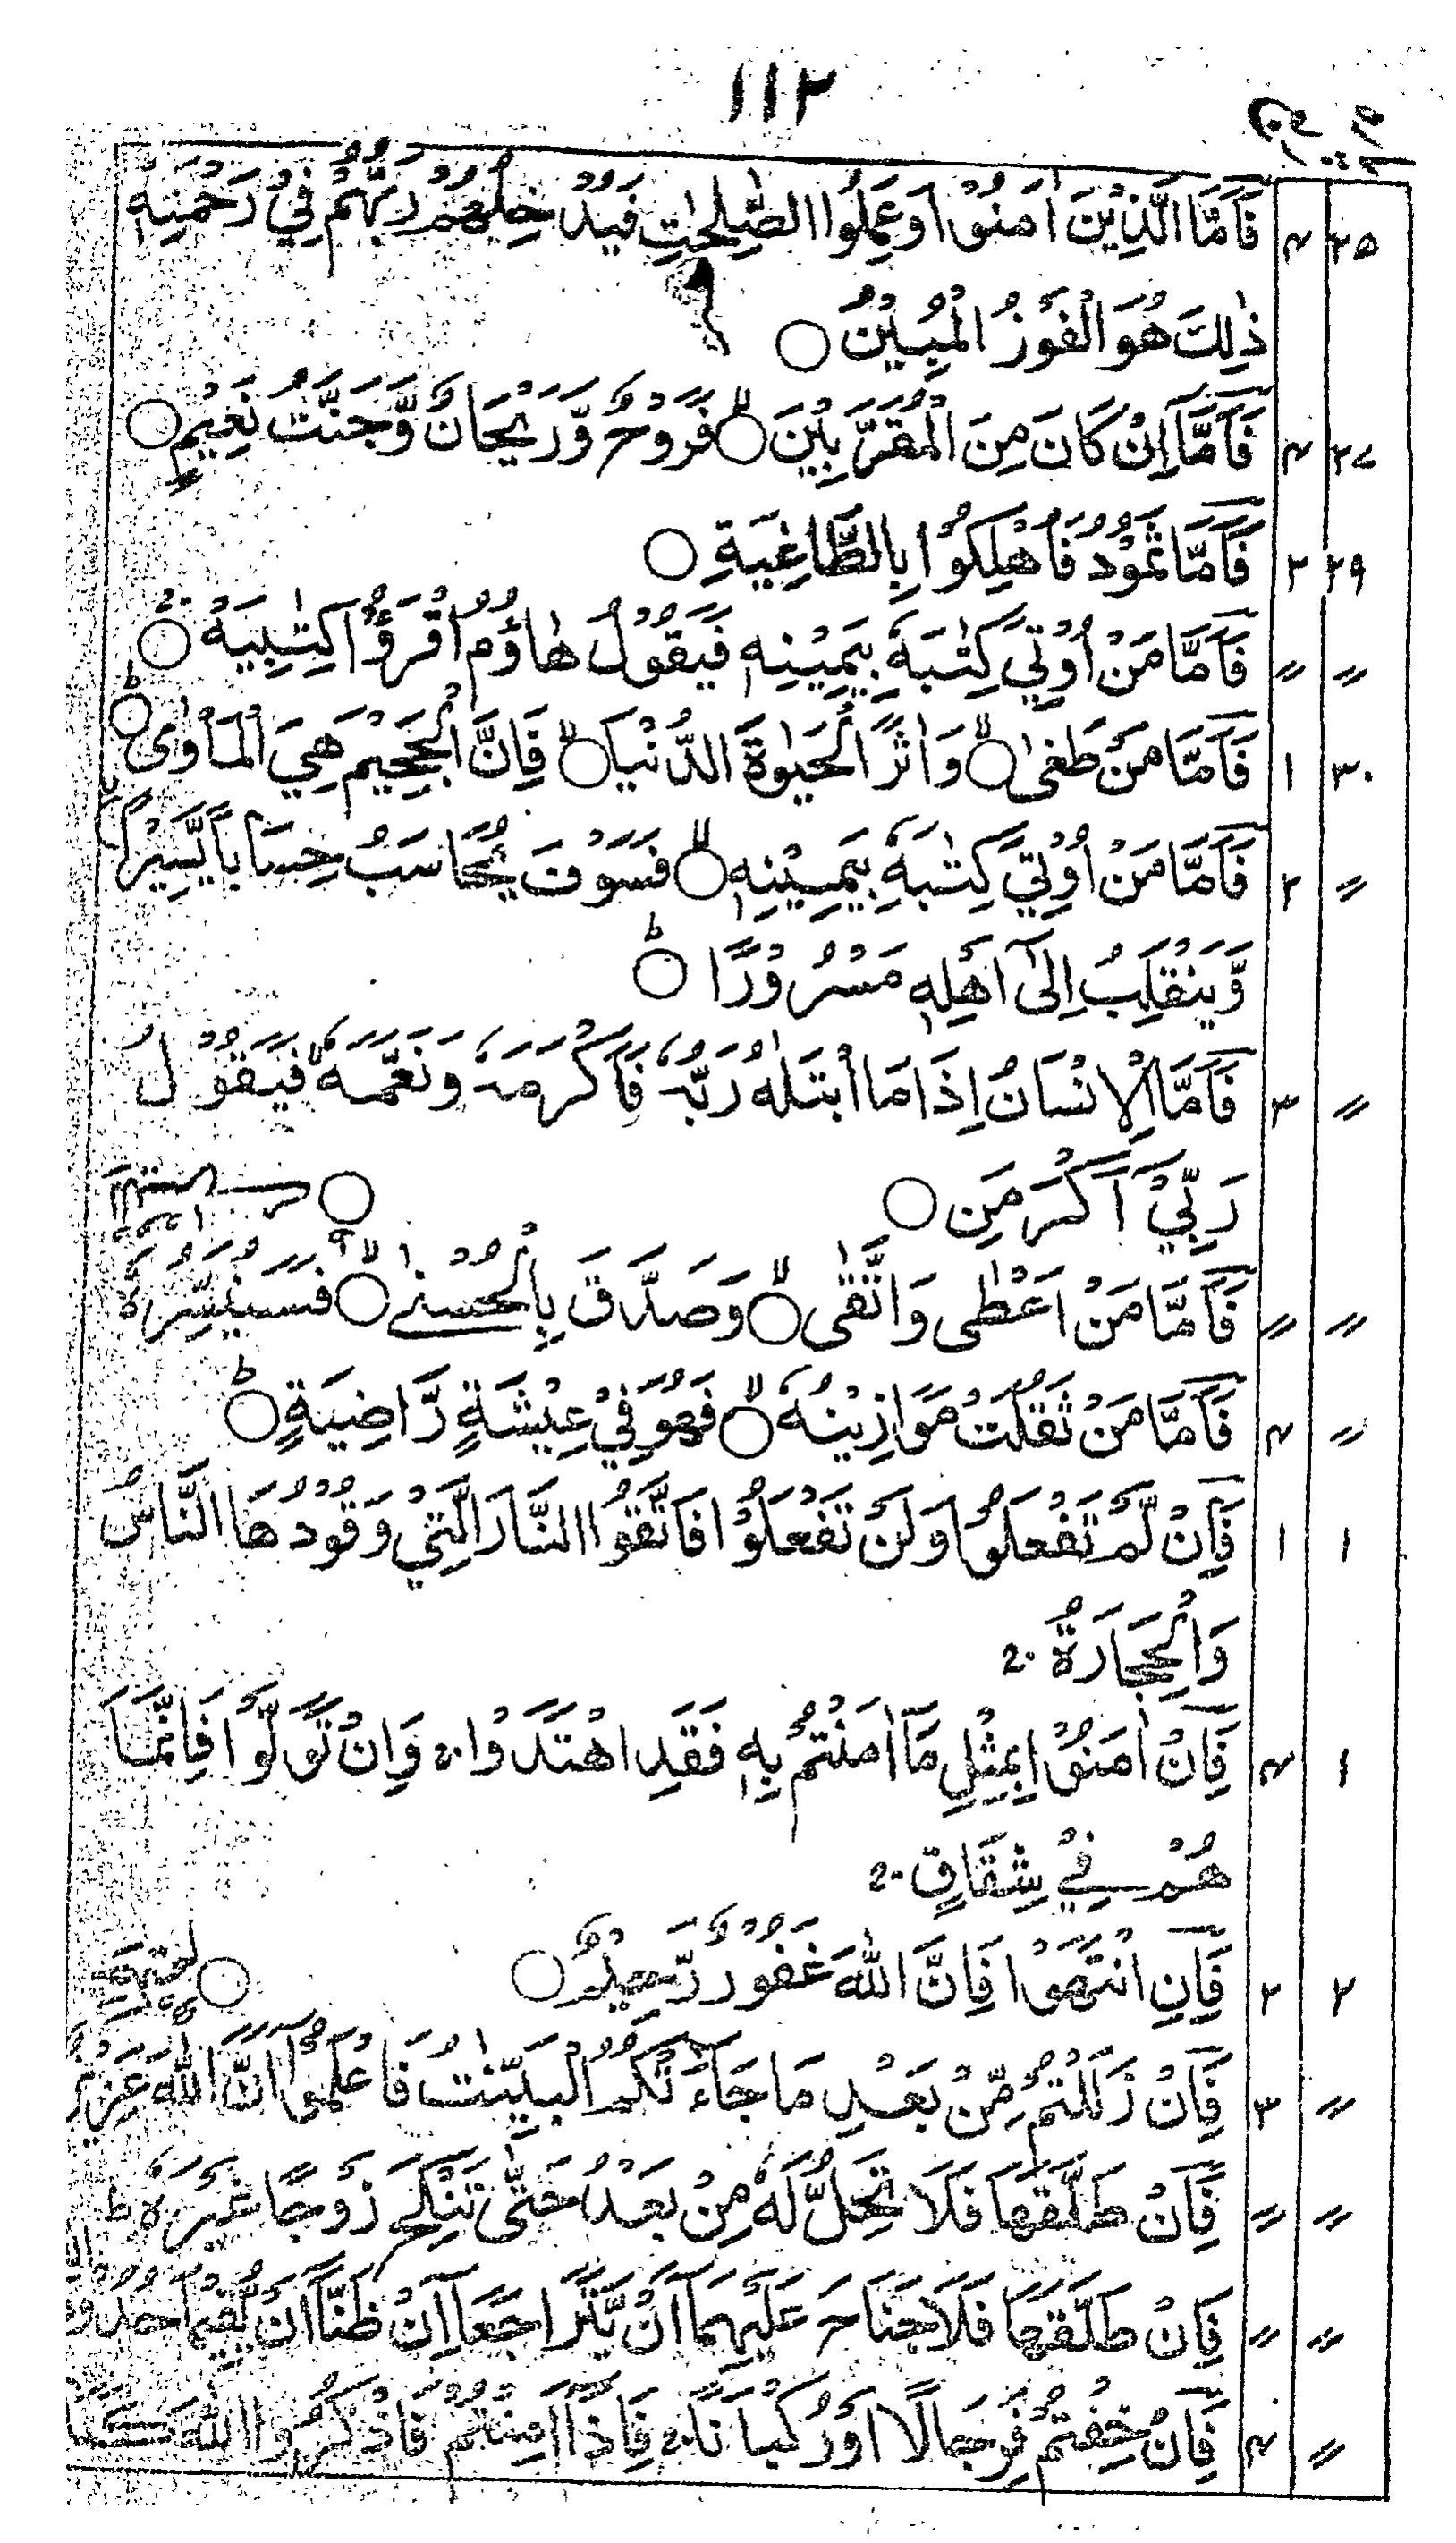 ۱۱۲
۲۵ ۴ فَأَمَّا الَّذِيْنَ اٰمَنُوْا وَعَمِلُوا الصّٰلِحٰتِ فَيُدْخِلُهُمْ رَبُّهُمْ فِيْ رَحْمَتِهٖ
ذٰلِكَ هُوَ الْفَوْزُ الْمُبِيْنُ ○
۲۷ ۴ فَأَمَّآ اِنْ كَانَ مِنَ الْمُقَرَّبِيْنَ ○ۙ فَرَوْحٌ وَّرَيْحَانٌ وَّجَنَّتُ نَعِيْمٍ ○
۲۹ ۲ فَأَمَّا ثَمُوْدُ فَاُهْلِكُوْا بِالطَّاغِيَةِ ○
〃 〃 فَأَمَّا مَنْ اُوْتِيَ كِتٰبَهٗ بِيَمِيْنِهٖ فَيَقُوْلُ هَاؤُمُ اقْرَءُوْا كِتٰبِيَهْ ○ۚ
۳۰ ۱ فَأَمَّا مَنْ طَغٰى ○ۙ وَاٰثَرَ الْحَيٰوةَ الدُّنْيَا ○ۙ فَاِنَّ الْجَحِيْمَ هِيَ الْمَأْوٰى ○ؕ
〃 ۲ فَأَمَّا مَنْ اُوْتِيَ كِتٰبَهٗ بِيَمِيْنِهٖ ○ۙ فَسَوْفَ يُحَاسَبُ حِسَابًا يَّسِيْرًا
وَّيَنْقَلِبُ اِلٰٓى اَهْلِهٖ مَسْرُوْرًا ○ؕ
〃 ۳ فَأَمَّا الْاِنْسَانُ اِذَا مَا ابْتَلٰىهُ رَبُّهٗ فَأَكْرَمَهٗ وَنَعَّمَهٗ ۙ فَيَقُوْلُ
رَبِّيْٓ اَكْرَمَنِ ○ ○
〃 〃 فَأَمَّا مَنْ اَعْطٰى وَاتَّقٰى ○ۙ وَصَدَّقَ بِالْحُسْنٰى ○ۙ فَسَنُيَسِّرُهٗ
〃 ۴ فَأَمَّا مَنْ ثَقُلَتْ مَوَازِيْنُهٗ ○ۙ فَهُوَ فِيْ عِيْشَةٍ رَّاضِيَةٍ ○ؕ
۱ ۱ فَاِنْ لَّمْ تَفْعَلُوْا وَلَنْ تَفْعَلُوْا فَاتَّقُوا النَّارَ الَّتِيْ وَقُوْدُهَا النَّاسُ
وَالْحِجَارَةُ ۚ
۱ ۴ فَاِنْ اٰمَنُوْا بِمِثْلِ مَآ اٰمَنْتُمْ بِهٖ فَقَدِ اهْتَدَوْا ۚ وَاِنْ تَوَلَّوْا فَاِنَّمَا
هُمْ فِيْ شِقَاقٍ ۚ
۲ ۲ فَاِنِ انْتَهَوْا فَاِنَّ اللّٰهَ غَفُوْرٌ رَّحِيْمٌ ○ ○
〃 ۳ فَاِنْ زَلَلْتُمْ مِّنْ بَعْدِ مَا جَآءَتْكُمُ الْبَيِّنٰتُ فَاعْلَمُوْٓا اَنَّ اللّٰهَ عَزِيْزٌ
〃 〃 فَاِنْ طَلَّقَهَا فَلَا تَحِلُّ لَهٗ مِنْ بَعْدُ حَتّٰى تَنْكِحَ زَوْجًا غَيْرَهٗ ؕ
〃 〃 فَاِنْ طَلَّقَهَا فَلَا جُنَاحَ عَلَيْهِمَآ اَنْ يَّتَرَاجَعَآ اِنْ ظَنَّآ اَنْ يُّقِيْمَا حُدُوْدَ
〃 ۴ فَاِنْ خِفْتُمْ فَرِجَالًا اَوْ رُكْبَانًا ۚ فَاِذَآ اَمِنْتُمْ فَاذْكُرُوا اللّٰهَ كَمَا